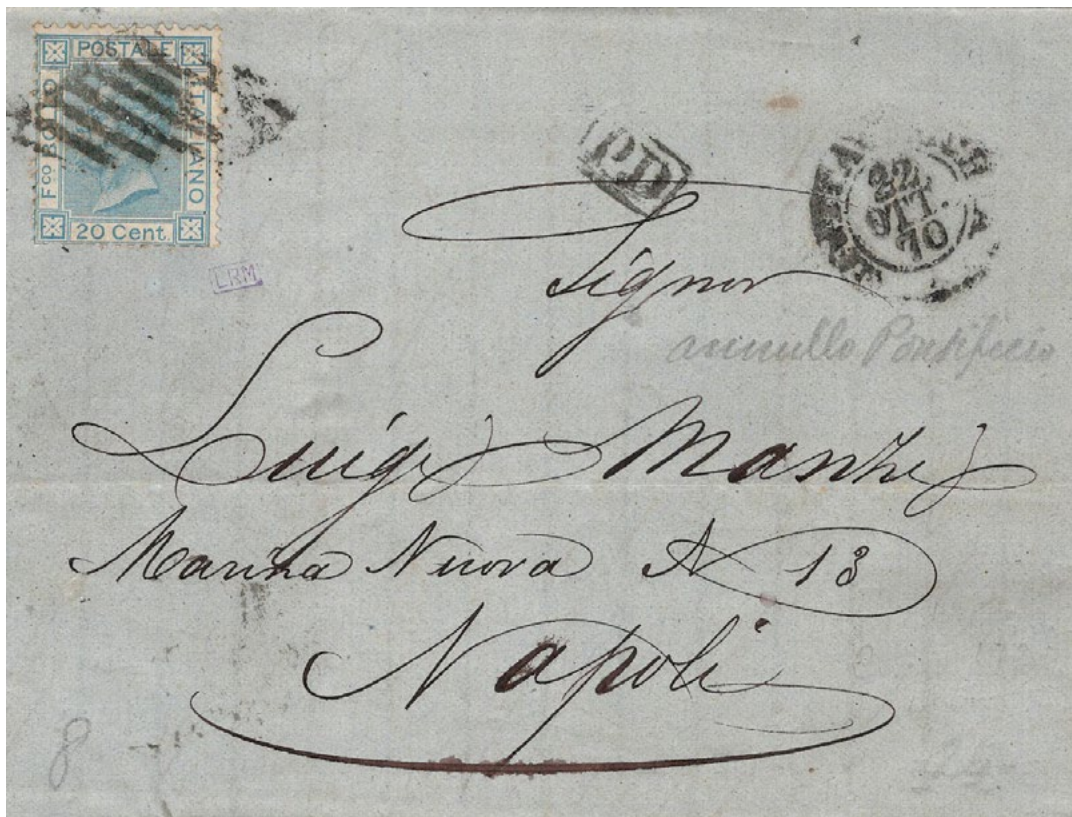 POSTALE
Fco BOLLO
ITALIANO
20 Cent.
PD
22
OTT.
70
LRM
Signor
annullo Pontificio
Luigi Manzi
Marina Nuova N 13
Napoli
8